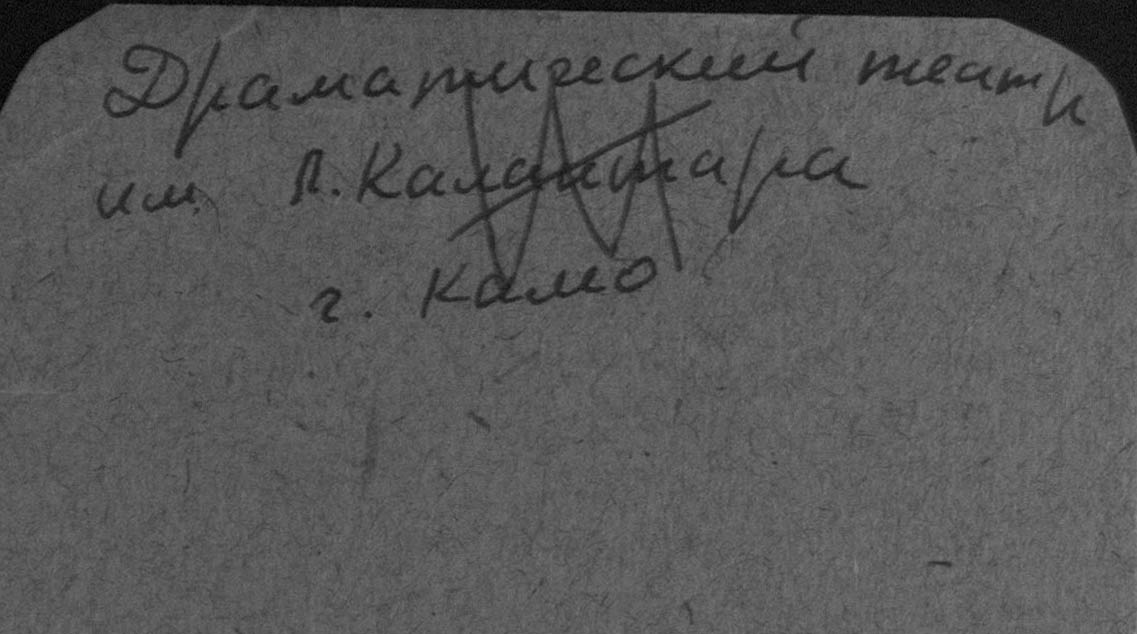 Драматический театр
им. Л. Калантара
г. Камо